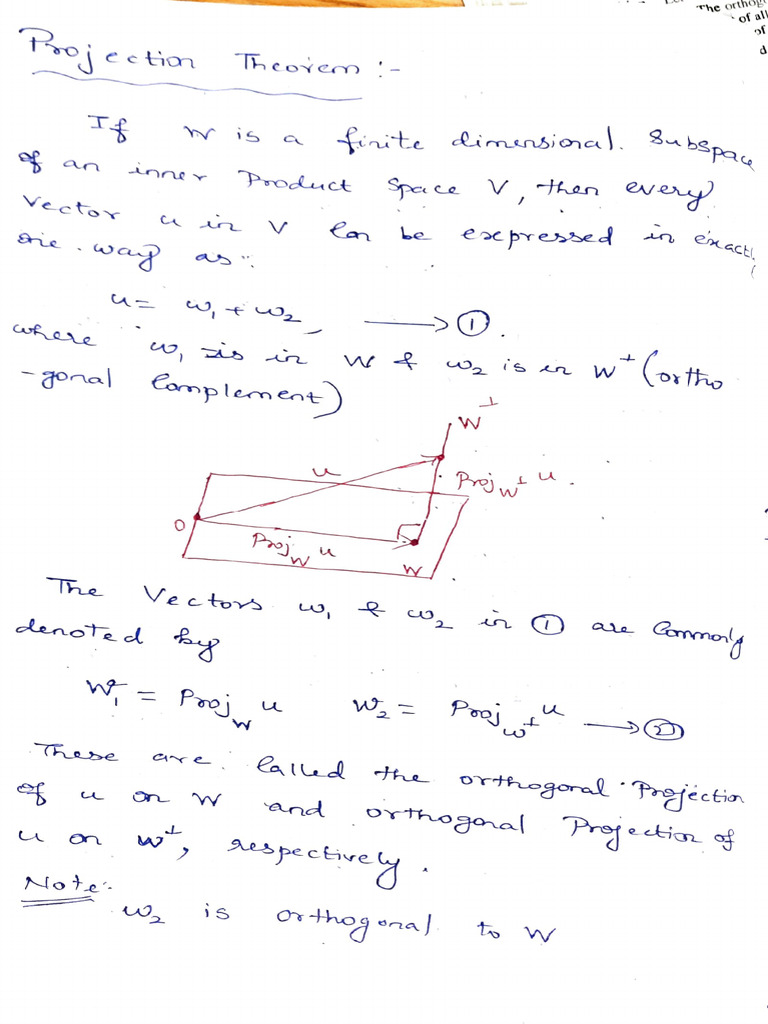 The orthog
of all
of
d
Projection Theorem :-
If W is a finite dimensional. Subspace
of an inner Product Space V, then every
Vector u in V Can be expressed in exactl
one way as :
u = w₁ + w₂, ⟶ ①.
where w₁ is in W & w₂ is in W⊥ (ortho
-gonal Complement)
W⊥
u
Proj_W⊥ u.
O
Proj_W u
W
The Vectors w₁ & w₂ in ① are Commonly
denoted by
W₁ = Proj_W u W₂ = Proj_W⊥ u ⟶ ②
These are. Called the orthogonal Projection
of u on W and orthogonal Projection of
u on W⊥, respectively.
Note:-
w₂ is orthogonal to W